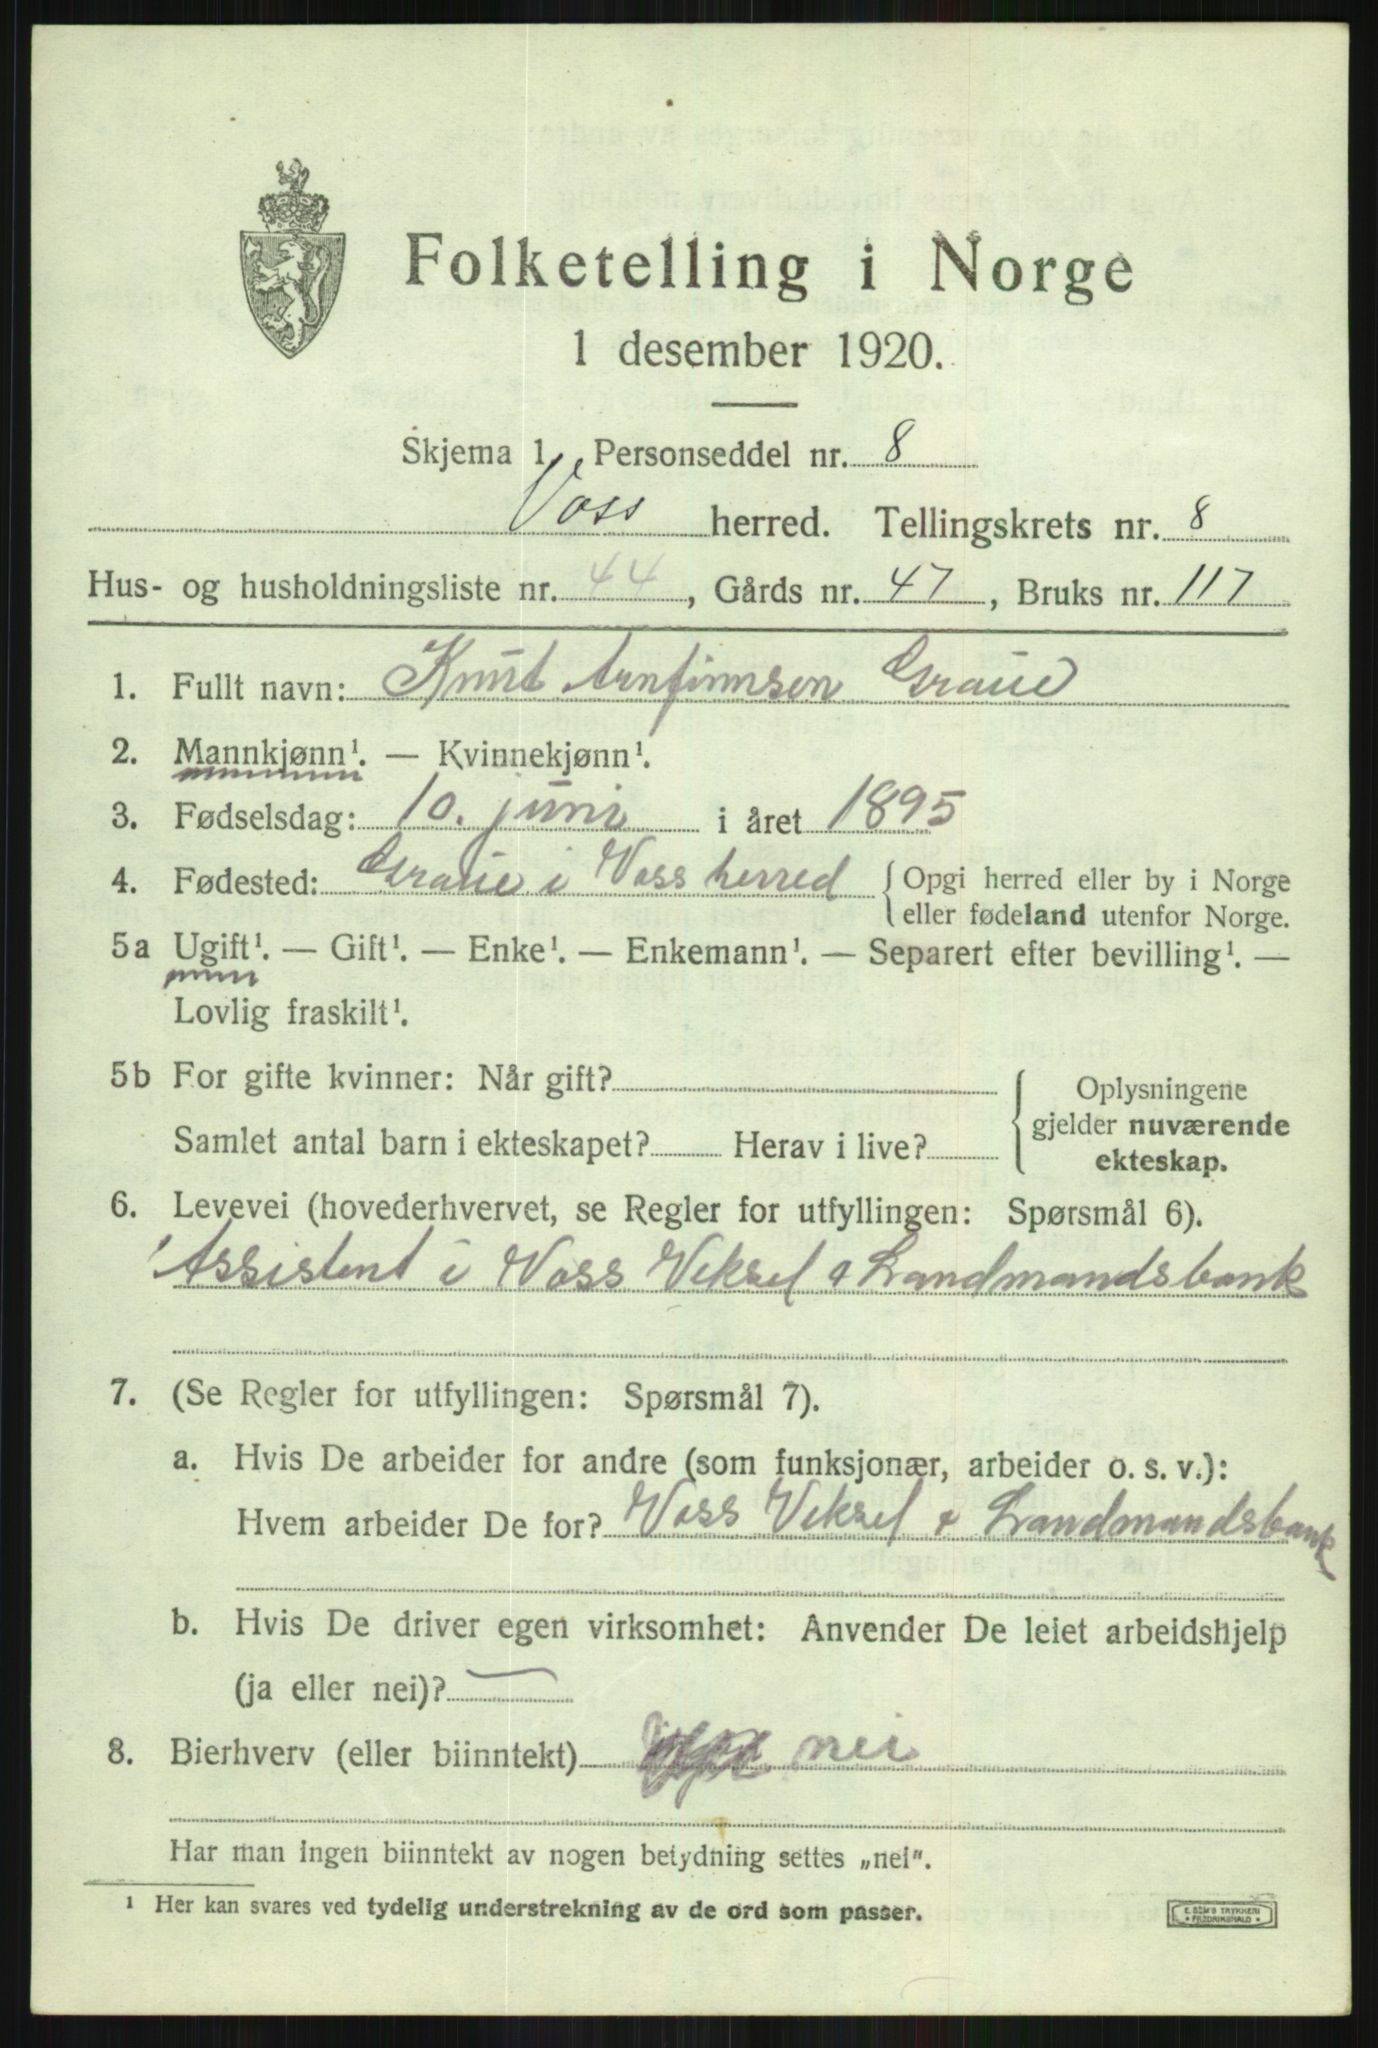 Folketelling i Norge
1 desember 1920.
Skjema 1. Personseddel nr. 8
Voss herred. Tellingskrets nr. 8
Hus- og husholdningsliste nr. 44, Gårds nr. 47, Bruks nr. 117
1. Fullt navn: Knut Arnfinnsen Graue
2. Mannkjønn¹. — Kvinnekjønn¹.
3. Fødselsdag: 10. juni i året 1895
4. Fødested: Graue i Voss herred { Opgi herred eller by i Norge
eller fødeland utenfor Norge.
5a Ugift¹. — Gift¹. — Enke¹. — Enkemann¹. — Separert efter bevilling¹. —
Lovlig fraskilt¹.
5b For gifte kvinner: Når gift?
Samlet antal barn i ekteskapet? Herav i live?
Oplysningene
gjelder nuværende
ekteskap.
6. Levevei (hovederhvervet, se Regler for utfyllingen: Spørsmål 6).
Assistent i Voss Veksel & Landmandsbank
7. (Se Regler for utfyllingen: Spørsmål 7).
a. Hvis De arbeider for andre (som funksjonær, arbeider o. s. v.):
Hvem arbeider De for? Voss Veksel & Landmandsbank
b. Hvis De driver egen virksomhet: Anvender De leiet arbeidshjelp
(ja eller nei)? —
8. Bierhverv (eller biinntekt) nei
Har man ingen biinntekt av nogen betydning settes „nei".
¹ Her kan svares ved tydelig understrekning av de ord som passer.
E. SEM'S TRYKKERI
* FREDRIKSHALD *